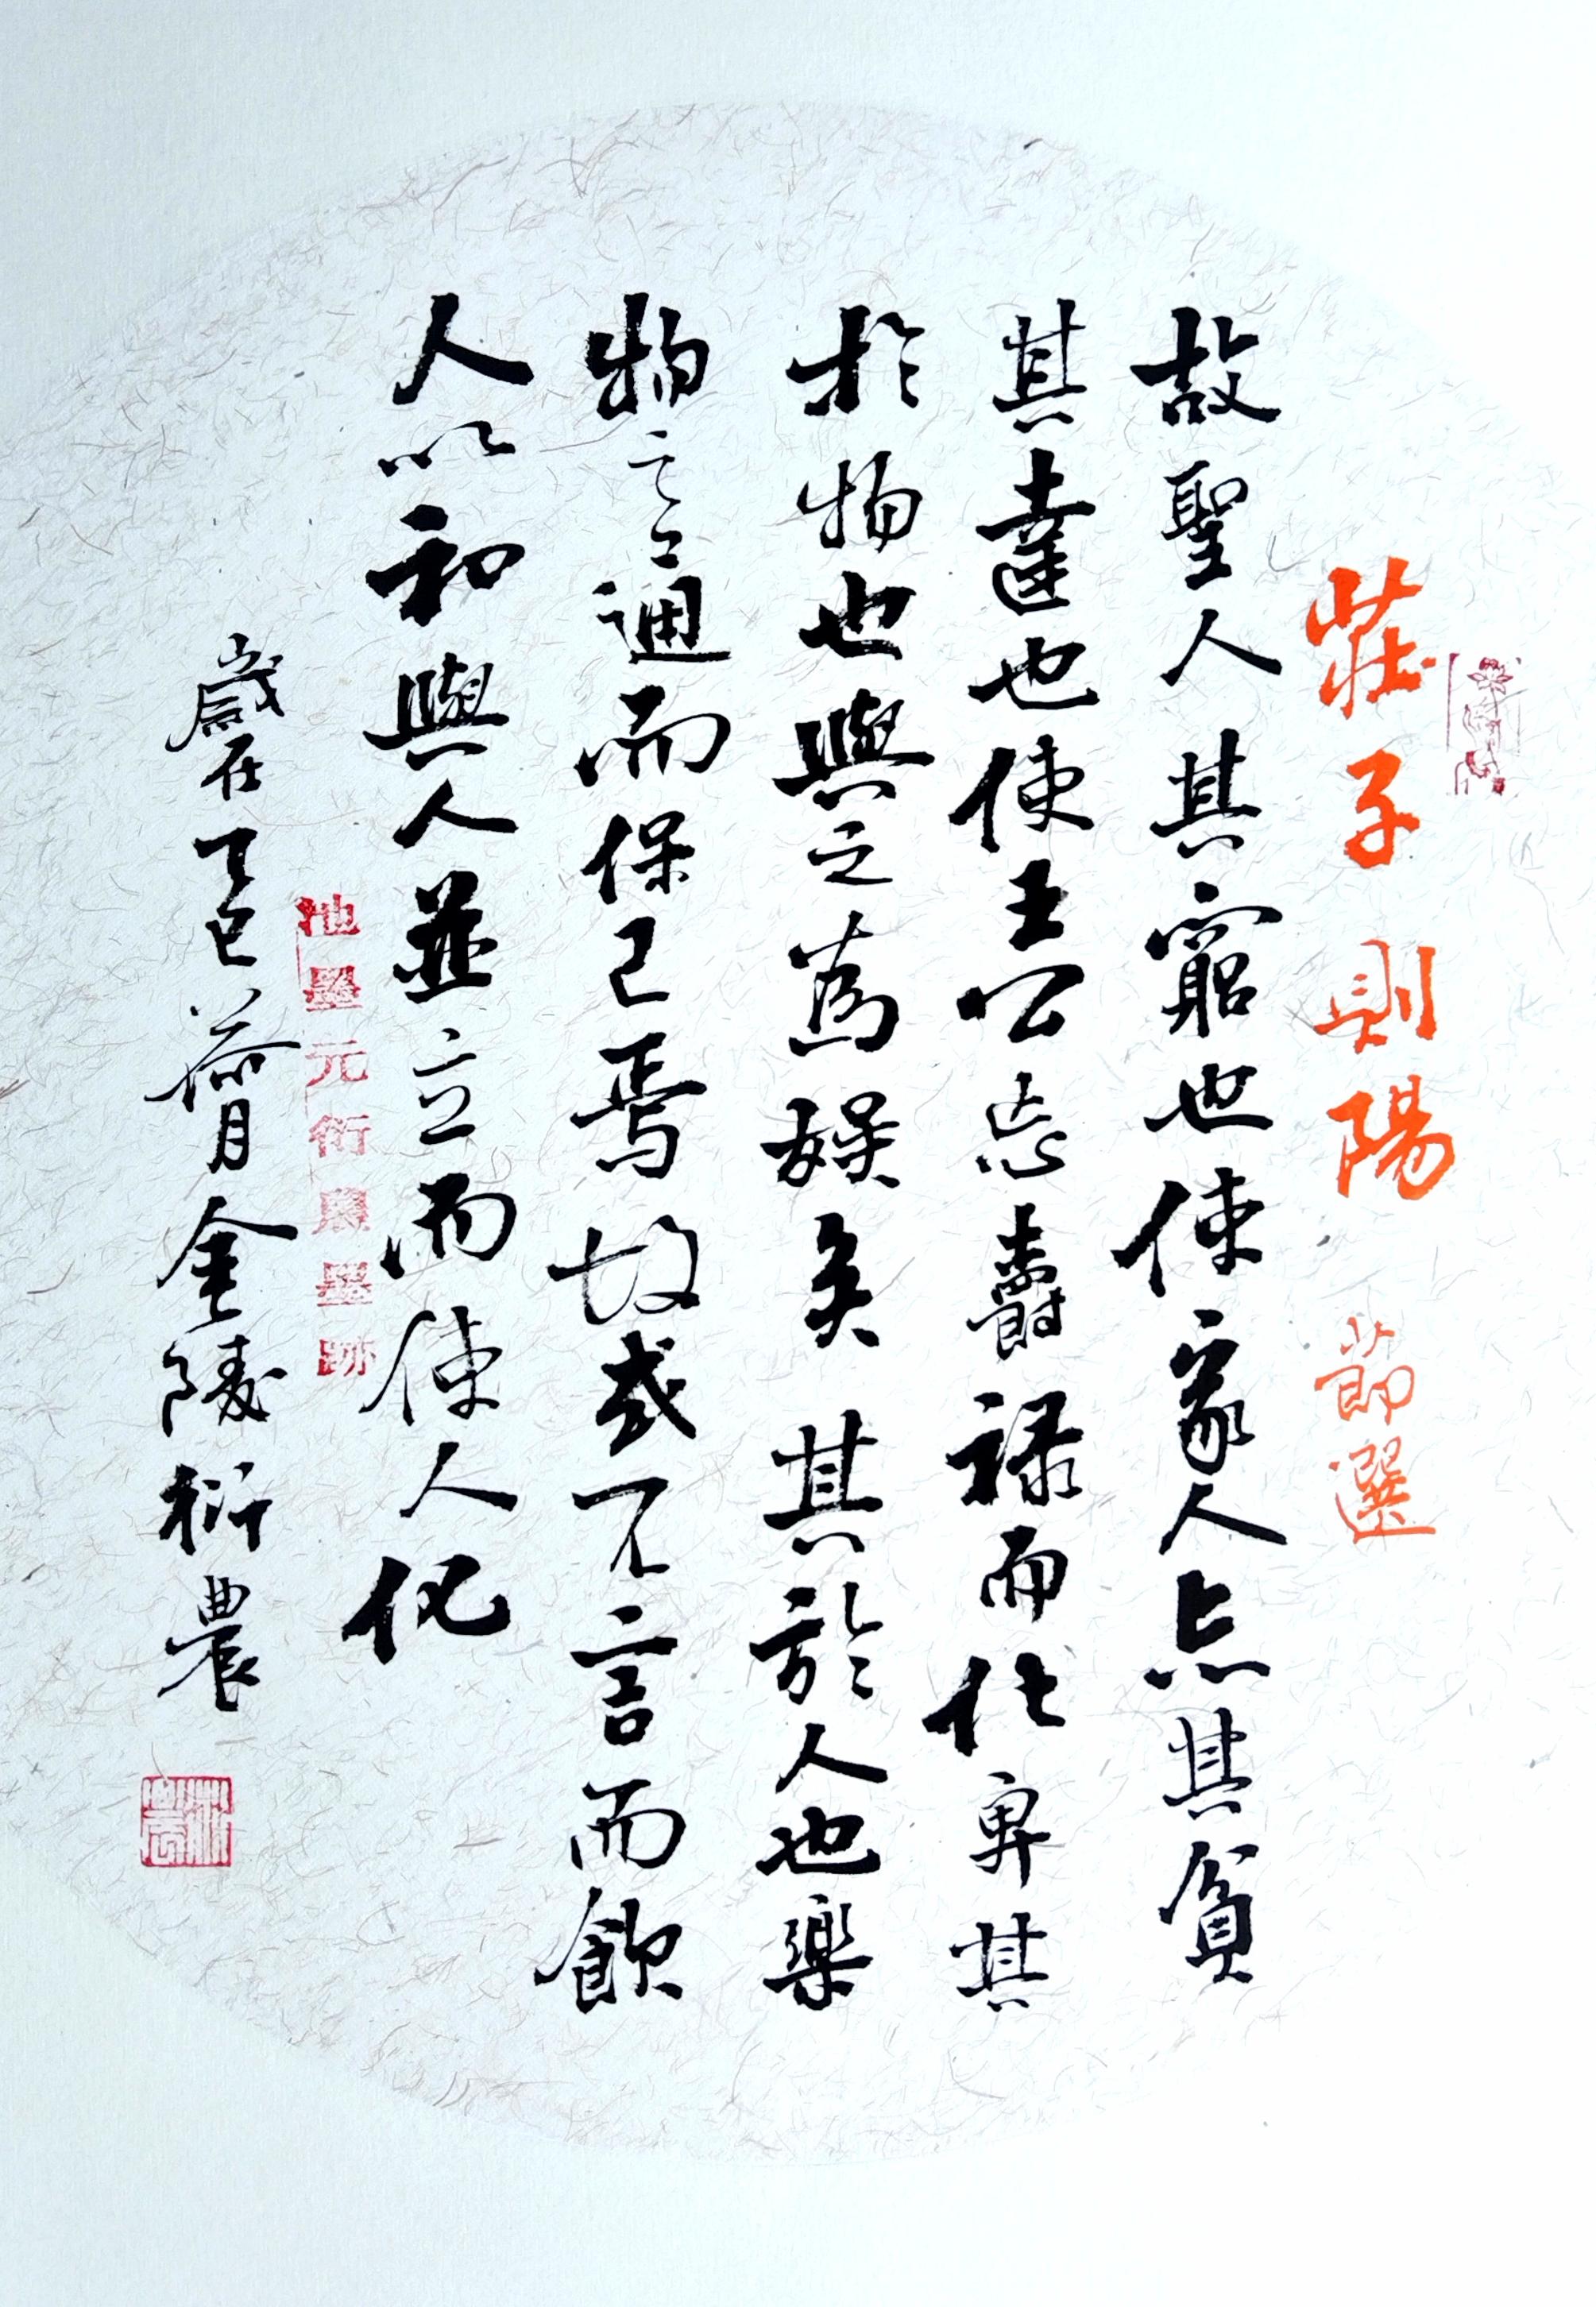 莊子則陽 節選
故聖人其窮也使家人忘其貧
其達也使王公忘爵祿而化卑其
於物也與之為娛矣其於人也樂
物之通而保己焉故或不言而飲
人以和與人並立而使人化
池墨元衍農墨跡
歲在乙巳荷月金陵衍農